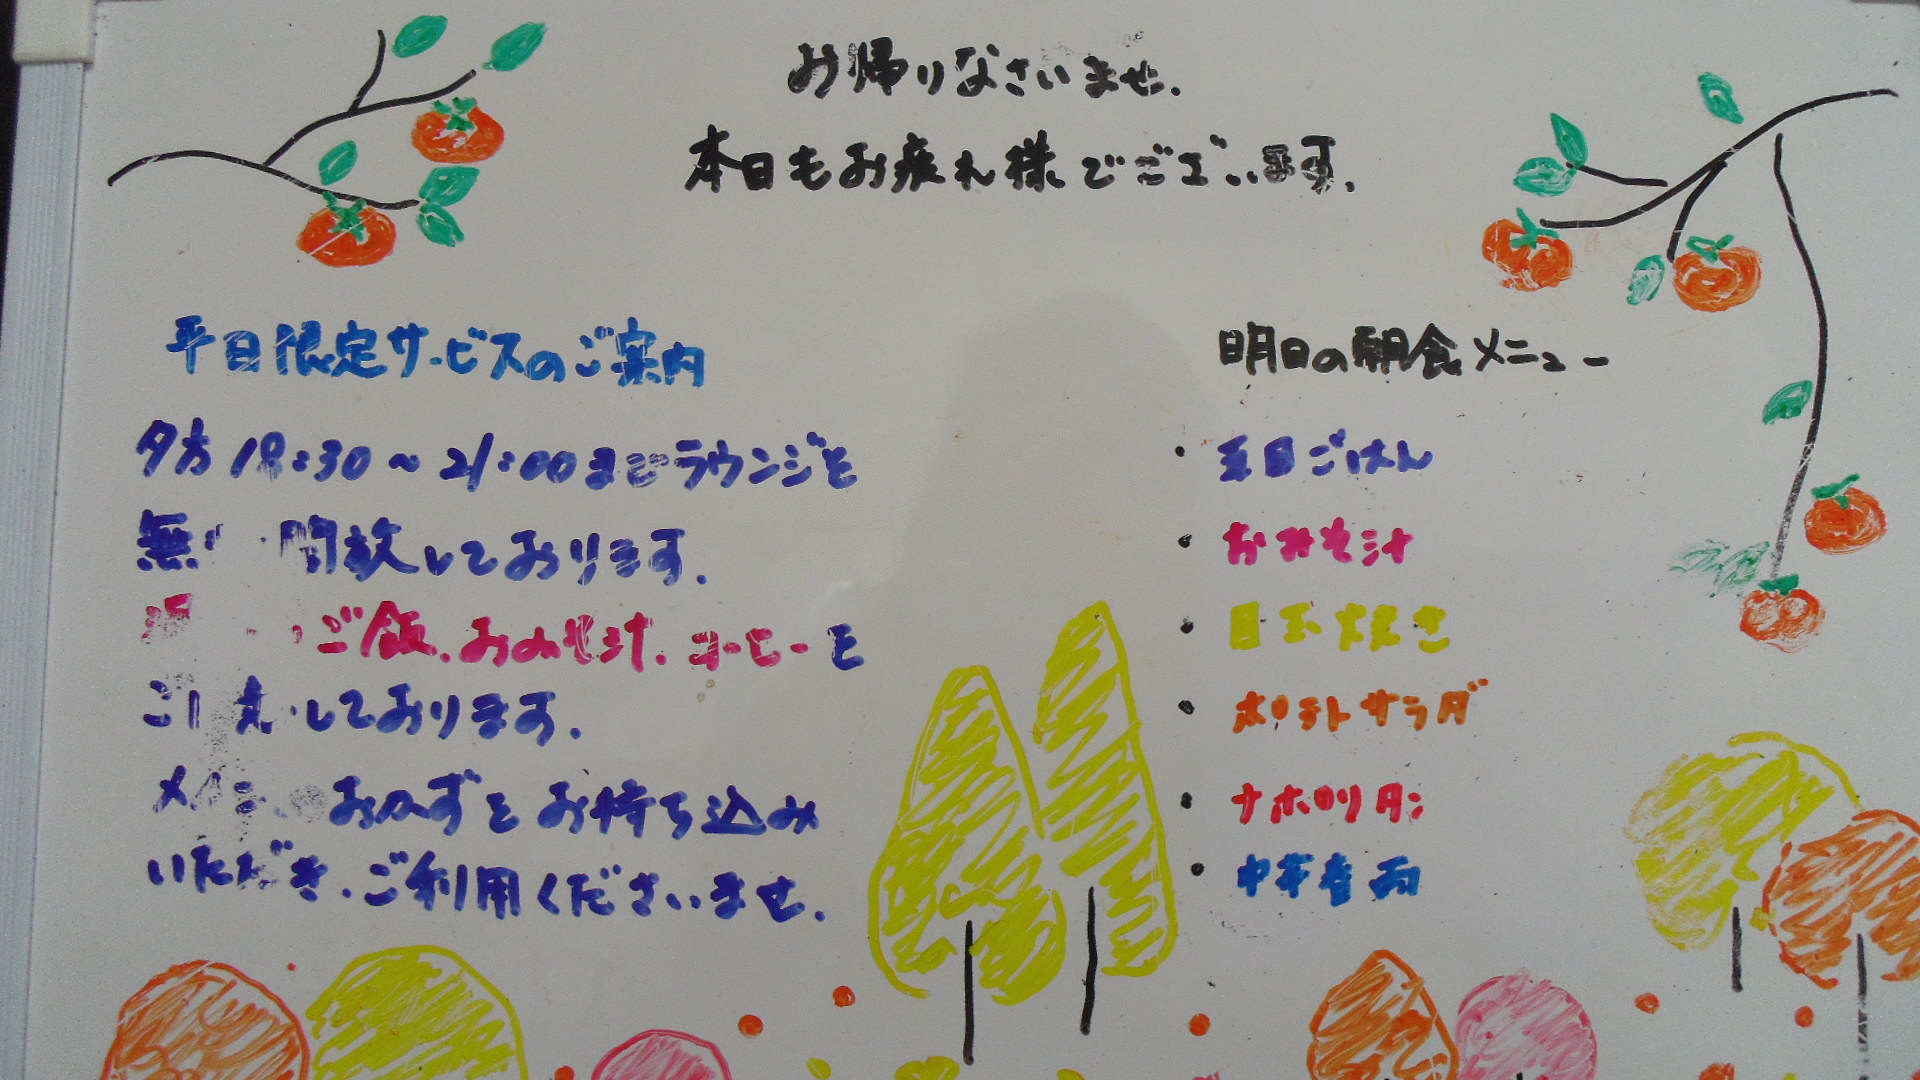 お帰りなさいませ.
本日もお疲れ様でございます.
平日限定サービスのご案内
夕方18:30～21:00までラウンジを
無 開放しております.
ご飯.おみそ汁.コーヒーを
ご しております.
メイン おかずをお持ち込み
いただき.ご利用くださいませ.
明日の朝食メニュー
・五目ごはん
・おみそ汁
・目玉焼き
・ポテトサラダ
・ナポリタン
・中華春雨